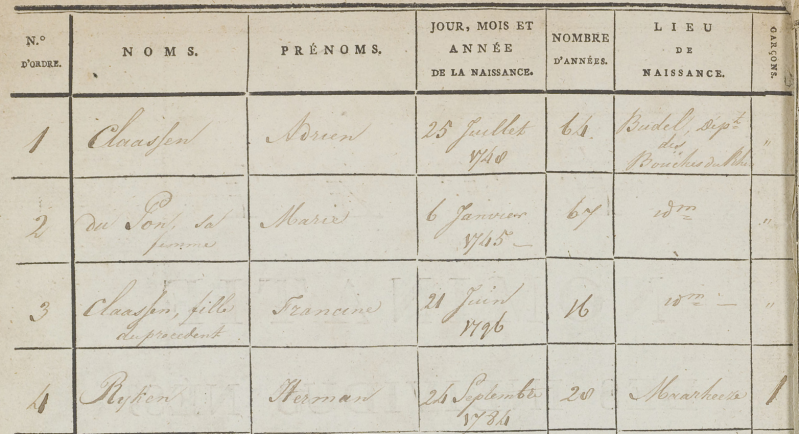 N.º D'ORDRE. NOMS. PRÉNOMS. JOUR, MOIS ET ANNÉE DE LA NAISSANCE. NOMBRE D'ANNÉES. LIEU DE NAISSANCE. GARÇONS.
1 Claassen Adrien 25 Juillet 1748 64 Budel, Dépt. des Bouches du Rhin "
2 du Pon, sa femme Marie 6 Janvier 1745 67 idm "
3 Claassen, fille du précédent Francine 21 Juin 1796 16 idm "
4 Ryken Herman 24 Septembre 1784 28 Maarheeze 1